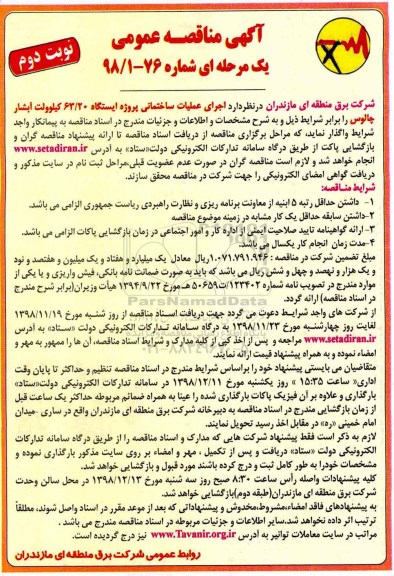 آگهی مناقصه عمومی
نوبت دوم
یک مرحله ای شماره ۷۶-۹۸/۱
شرکت برق منطقه ای مازندران درنظردارد اجرای عملیات ساختمانی پروژه ایستگاه ۶۳/۲۰ کیلوولت آبشار
چالوس را برابر شرایط ذیل و به شرح مشخصات و اطلاعات و جزئیات مندرج در اسناد مناقصه به پیمانکار واجد
شرایط واگذار نماید، که مراحل برگزاری مناقصه از دریافت اسناد مناقصه تا ارائه پیشنهاد مناقصه گران و
بازگشایی پاکت از طریق درگاه سامانه تدارکات الکترونیکی دولت«ستاد» به آدرس www.setadiran.ir
انجام خواهد شد و لازم است مناقصه گران در صورت عدم عضویت قبلی،مراحل ثبت نام در سایت مذکور و
دریافت گواهی امضای الکترونیکی را جهت شرکت در مناقصه محقق سازند.
شرایط مناقصه:
۱- داشتن حداقل رتبه ۵ ابنیه از معاونت برنامه ریزی و نظارت راهبردی ریاست جمهوری الزامی می باشد.
۲-داشتن سابقه حداقل یک کار مشابه در زمینه موضوع مناقصه
۳- ارائه گواهینامه تایید صلاحیت ایمنی از اداره کار و امور اجتماعی در زمان بازگشایی پاکات الزامی می باشد.
۴-مدت زمان انجام کار یکسال می باشد.
مبلغ تضمین شرکت در مناقصه : ۱.۰۷۱.۷۹۱.۹۴۶ریال معادل یک میلیارد و هفتاد و یک میلیون و هفتصد و نود
و یک هزار و نهصد و چهل و شش ریال می باشد که باید به صورت ضمانت نامه بانکی، فیش واریزی و یا یکی از
موارد مندرج در تصویب نامه شماره ۱۲۳۴۰۲/ت۵۰۶۵۹هـ مورخ ۱۳۹۴/۹/۲۲ هیأت وزیران(برابر شرح مندرج
در اسناد مناقصه) ارائه گردد.
از شرکت های واجد شرایـط دعوت می گردد جهت دریافت اسـناد مناقصه از روز شنبه مورخ ۱۳۹۸/۱۱/۱۹
لغایت روز چهارشنبه مورخ ۱۳۹۸/۱۱/۲۳ به درگاه سامانه تدارکات الکترونیکی دولت «ستاد» به آدرس
www.setadiran.ir مراجعه و پس از اخذ کپی از کلیه مدارک و شرایط اسناد مناقصه، آن ها را ممهور به مهر و
امضاء نموده و به همراه پیشنهاد قیمت ارائه نمایند.
متقاضیان می بایستی پیشنهاد خود را براساس شرایط مندرج در اسناد مناقصه تنظیم و حداکثر تا پایان وقت
اداری« ساعت ۱۵:۳۵ » روز یکشنبه مورخ ۱۳۹۸/۱۲/۱۱ در سامانه تدارکات الکترونیکی دولت«ستاد»
بارگذاری و علاوه بر آن فیزیک پاکات بارگذاری شده را عینا به همراه ضمائم مربوطه حداکثر یک ساعت قبل
از زمان بازگشایی مندرج در اسناد مناقصه به دبیرخانه شرکت برق منطقه ای مازندران واقع در ساری -میدان
امام خمینی «ره» در مقابل اخذ رسید تحویل نمایند.
لازم به ذکر است فقط پیشنهاد شرکت هایی که مدارک و اسناد مناقصه را از طریق درگاه سامانه تدارکات
الکترونیکی دولت «ستاد» دریافت و پس از تکمیل ، مهر و امضاء بر روی سایت مذکور بارگذاری نموده و
مشخصات خودرا به طور کامل ثبت و درج کرده باشند مورد قبول و بازگشایی خواهد شد.
کلیه پیشنهادات واصله رأس ساعت ۸:۳۰ صبح روز سه شنبه مورخ ۱۳۹۸/۱۲/۱۳ در محل سالن وحدت
شرکت برق منطقه ای مازندران(طبقه دوم)بازگشایی خواهد شد.
به پیشنهادهای فاقد امضاء،مشروط،مخدوش و پیشنهاداتی که بعد از موعد مقرر در اسناد واصل شوند، مطلقاً
ترتیب اثر داده نخواهد شد.سایر اطلاعات و جزئیات مربوطه در اسناد مناقصه مندرج می باشد .
مراتب در سایت معاملات توانیر به آدرس www.Tavanir.org.ir نیز درج گردیده است.
روابط عمومی شرکت برق منطقه ای مازندران